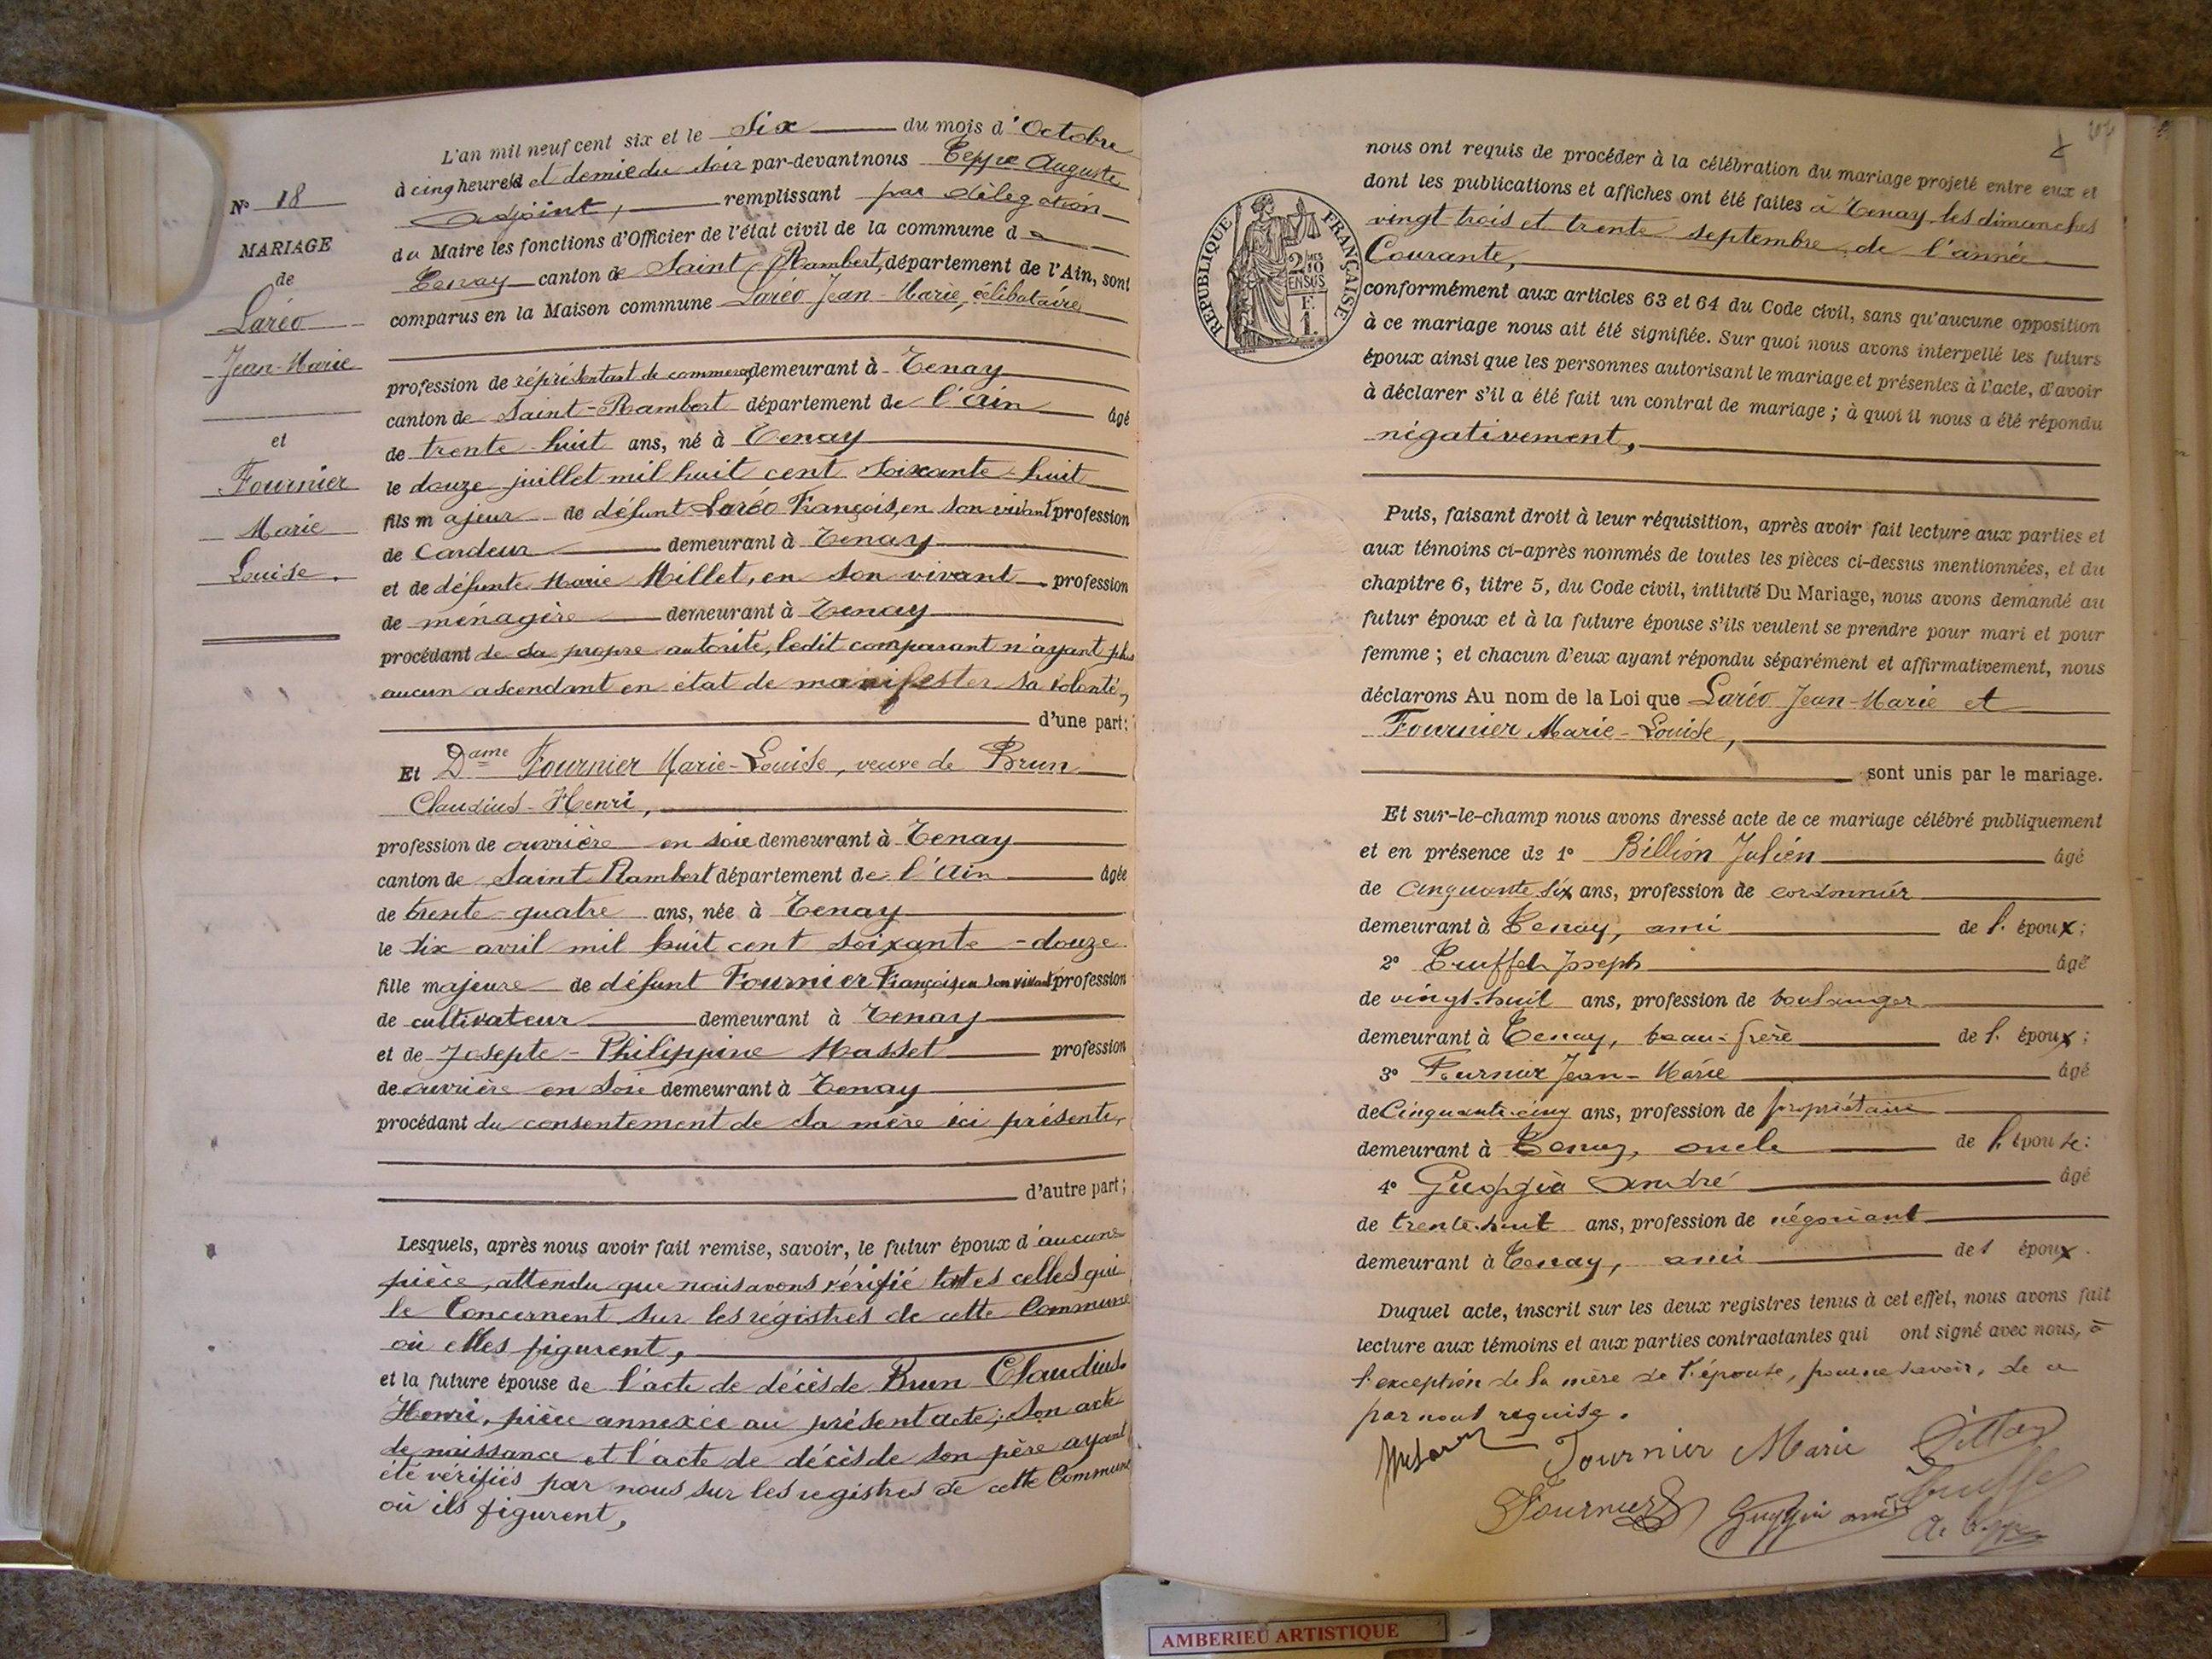 N° 18
MARIAGE
de
Laréo
Jean-Marie
et
Fournier
Marie
Louise.
L'an mil neuf cent six et le Six du mois d'Octobre
à cinq heures et demie du soir par-devant nous Teppe Auguste
Adjoint, remplissant par délégation
du Maire les fonctions d'Officier de l'état civil de la commune de
Tenay canton de Saint-Rambert, département de l'Ain, sont
comparus en la Maison commune Laréo Jean-Marie, célibataire
profession de réprésentant de commerce, demeurant à Tenay
canton de Saint-Rambert département de l'Ain âgé
de trente huit ans, né à Tenay
le douze juillet mil huit cent soixante-huit
fils majeur de défunt Laréo François, en son vivant profession
de Cardeur demeurant à Tenay
et de défunte Marie Millet, en son vivant profession
de ménagère demeurant à Tenay
procédant de sa propre autorité, ledit comparant n'ayant plus
aucun ascendant en état de manifester sa volonté,
d'une part;
Et Dame Fournier Marie-Louise, veuve de Brun
Claudius-Henri,
profession de ouvrière en soie demeurant à Tenay
canton de Saint Rambert département de l'Ain âgée
de trente-quatre ans, née à Tenay
le dix avril mil huit cent soixante-douze
fille majeure de défunt Fournier François, en son vivant profession
de cultivateur demeurant à Tenay
et de Josepte-Philippine Masset profession
de ouvrière en soie demeurant à Tenay
procédant du consentement de sa mère ici présente,
d'autre part;
Lesquels, après nous avoir fait remise, savoir, le futur époux d'aucune
pièce, attendu que nous avons vérifié toutes celles qui
le Concernent sur les régistres de cette Commune
où elles figurent,
et la future épouse de l'acte de décès de Brun Claudius-
Henri, pièce annexée au présent acte; son acte
de naissance et l'acte de décès de son père ayant
été vérifiés par nous sur les registres de cette Commune
où ils figurent,
RÉPUBLIQUE FRANÇAISE
2/10
EN SUS
F.
1.
nous ont requis de procéder à la célébration du mariage projeté entre eux et
dont les publications et affiches ont été faites à Tenay les dimanches
vingt-trois et trente septembre de l'année
Courante,
conformément aux articles 63 et 64 du Code civil, sans qu'aucune opposition
à ce mariage nous ait été signifiée. Sur quoi nous avons interpellé les futurs
époux ainsi que les personnes autorisant le mariage et présentes à l'acte, d'avoir
à déclarer s'il a été fait un contrat de mariage; à quoi il nous a été répondu
négativement,
Puis, faisant droit à leur réquisition, après avoir fait lecture aux parties et
aux témoins ci-après nommés de toutes les pièces ci-dessus mentionnées, et du
chapitre 6, titre 5, du Code civil, intitulé Du Mariage, nous avons demandé au
futur époux et à la future épouse s'ils veulent se prendre pour mari et pour
femme; et chacun d'eux ayant répondu séparément et affirmativement, nous
déclarons Au nom de la Loi que Laréo Jean-Marie et
Fournier Marie-Louise,
sont unis par le mariage.
Et sur-le-champ nous avons dressé acte de ce mariage célébré publiquement
et en présence de 1° Billion Julien âgé
de cinquante six ans, profession de cordonnier
demeurant à Tenay, ami de l'époux;
2° Truffet Joseph âgé
de vingt-huit ans, profession de boulanger
demeurant à Tenay, beau-frère de l'époux;
3° Fournier Jean-Marie âgé
de Cinquante-cinq ans, profession de propriétaire
demeurant à Tenay, oncle de l'épouse;
4° André âgé
de trente-huit ans, profession de négociant
demeurant à Tenay, ami de l'époux.
Duquel acte, inscrit sur les deux registres tenus à cet effet, nous avons fait
lecture aux témoins et aux parties contractantes qui ont signé avec nous, à
l'exception de la mère de l'épouse, pour ne savoir, de ce
par nous requise.
Fournier Marie
Fournier
AMBERIEU ARTISTIQUE